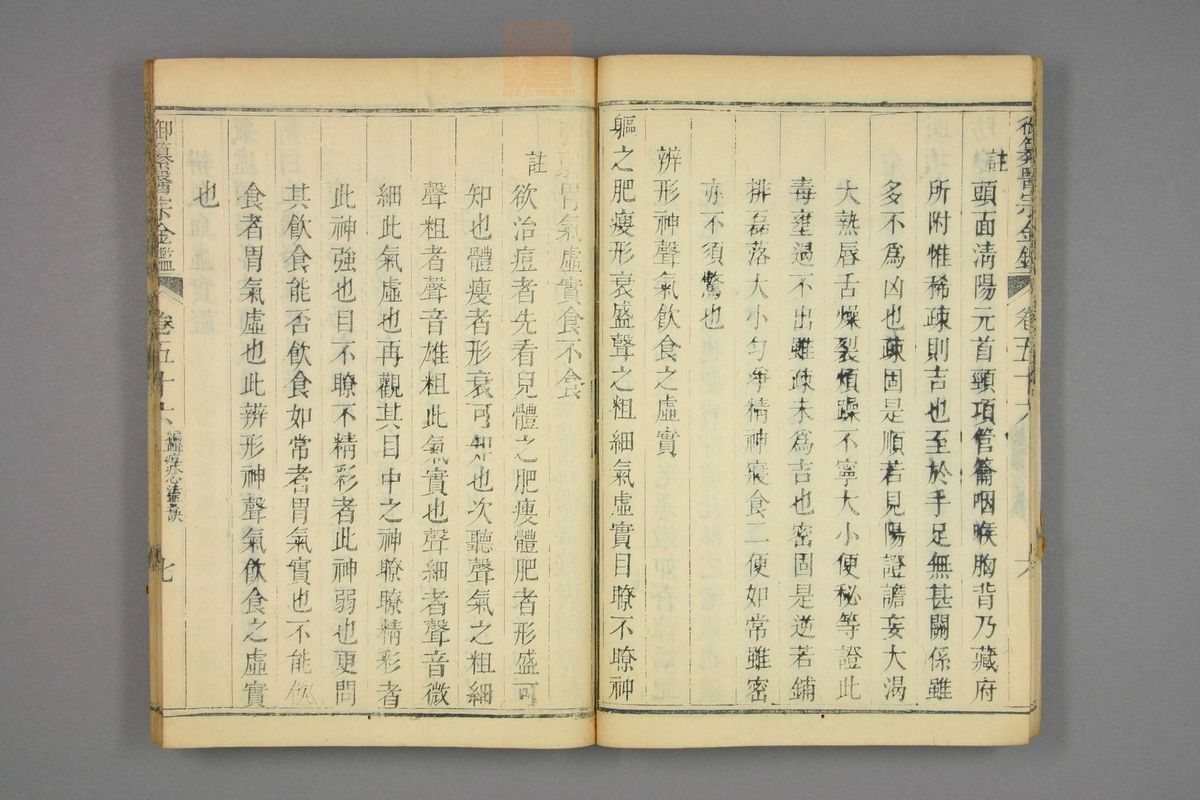 御纂醫宗金鑑
卷五十六
六
註
頭面淸陽元首頸項管籥咽喉胸背乃藏府
所附惟稀疎則吉也至於手足無甚關係雖
多不爲凶也疎固是順若見陽證譫妄大渴
大熱唇舌燥裂煩躁不寧大小便秘等證此
毒壅遏不出雖疎未爲吉也密固是逆若鋪
排磊落大小勻淨精神寢食二便如常雖密
亦不須驚也
辨形神聲氣飮食之虛實
軀之肥瘦形衰盛聲之粗細氣虛實目瞭不瞭神
胃氣虛實食不食
註
欲治痘者先看兒體之肥瘦體肥者形盛可
知也體瘦者形衰可知也次聽聲氣之粗細
聲粗者聲音雄粗此氣實也聲細者聲音微
細此氣虛也再觀其目中之神瞭瞭精彩者
此神強也目不瞭不精彩者此神弱也更問
其飮食能否飮食如常者胃氣實也不能飮
食者胃氣虛也此辨形神聲氣飮食之虛實
也
御纂醫宗金鑑
卷五十六
痘疹心法要訣
七
zysj.com.cn